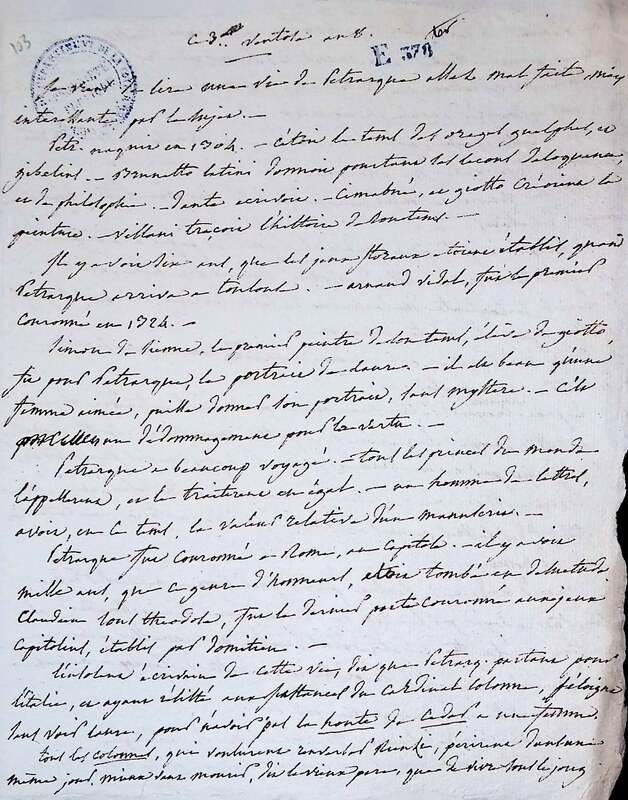 103
ce 3. ventose an 8.
E 378
je viens de lire une vie de Petrarque assez mal faite, mais
interessante par le sujet. —
Petr. naquit en 1304. — c'étoit le tems des orages guelphes, et
gibelins. — Brunetto latini donnoit pourtant des leçons d'eloquence,
et de philosophie. Dante ecrivoit. — Cimabué, et giotto créoient la
peinture. — Villani traçoit l'histoire de son tems. —
Il y avoit dix ans, que les jeux floraux etoient établis, quand
Petrarque arriva a toulouse. — arnaud Vidal, fut le premier
couronné en 1324. —
Simon de Sienne, le premier peintre de son tems, élève de giotto,
fit pour Petrarque, le portrait de Laure. — il est beau qu'une
femme aimée, puisse donner son portrait, sans mystère. — c'est
une dédommagement pour la vertu. —
Petrarque a beaucoup voyagé. — tous les princes du monde
l'appellerent, et le traiterent en égal. — un homme de lettres,
avoit, en ce tems, la valeur relative d'un manuscrit. —
Petrarque fut couronné a Rome, au capitole. — il y avoit
mille ans, que ce genre d'honneur, etoit tombé en desuetude
Claudien sous theodose, fut le dernier poete couronné aux jeux
capitolins, établis par domitien. —
l'écrivain de cette vie, dit que Petrarq. partant pour
l'italie, et ayant résisté aux instances du cardinal colonne, s'éloigna
sans voir laure, pour n'avoir pas la honte de ceder a une femme.
tous les colonnes, qui voulurent renverser Rienzi, périrent dans un
même jour. mieux vaut mourir, dit le vieux pere, que de vivre sous le joug